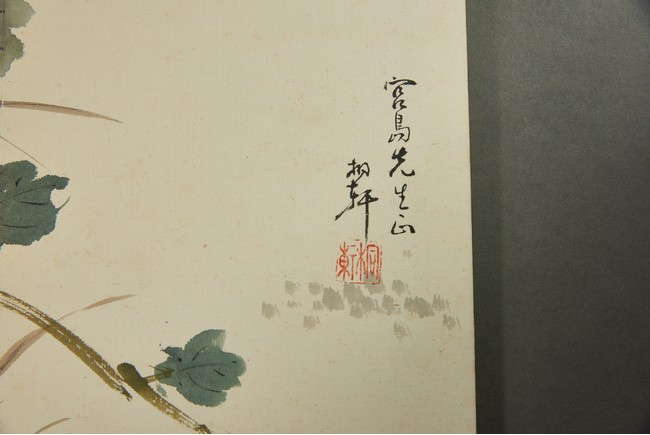 宮島先生正
桐軒
桐軒